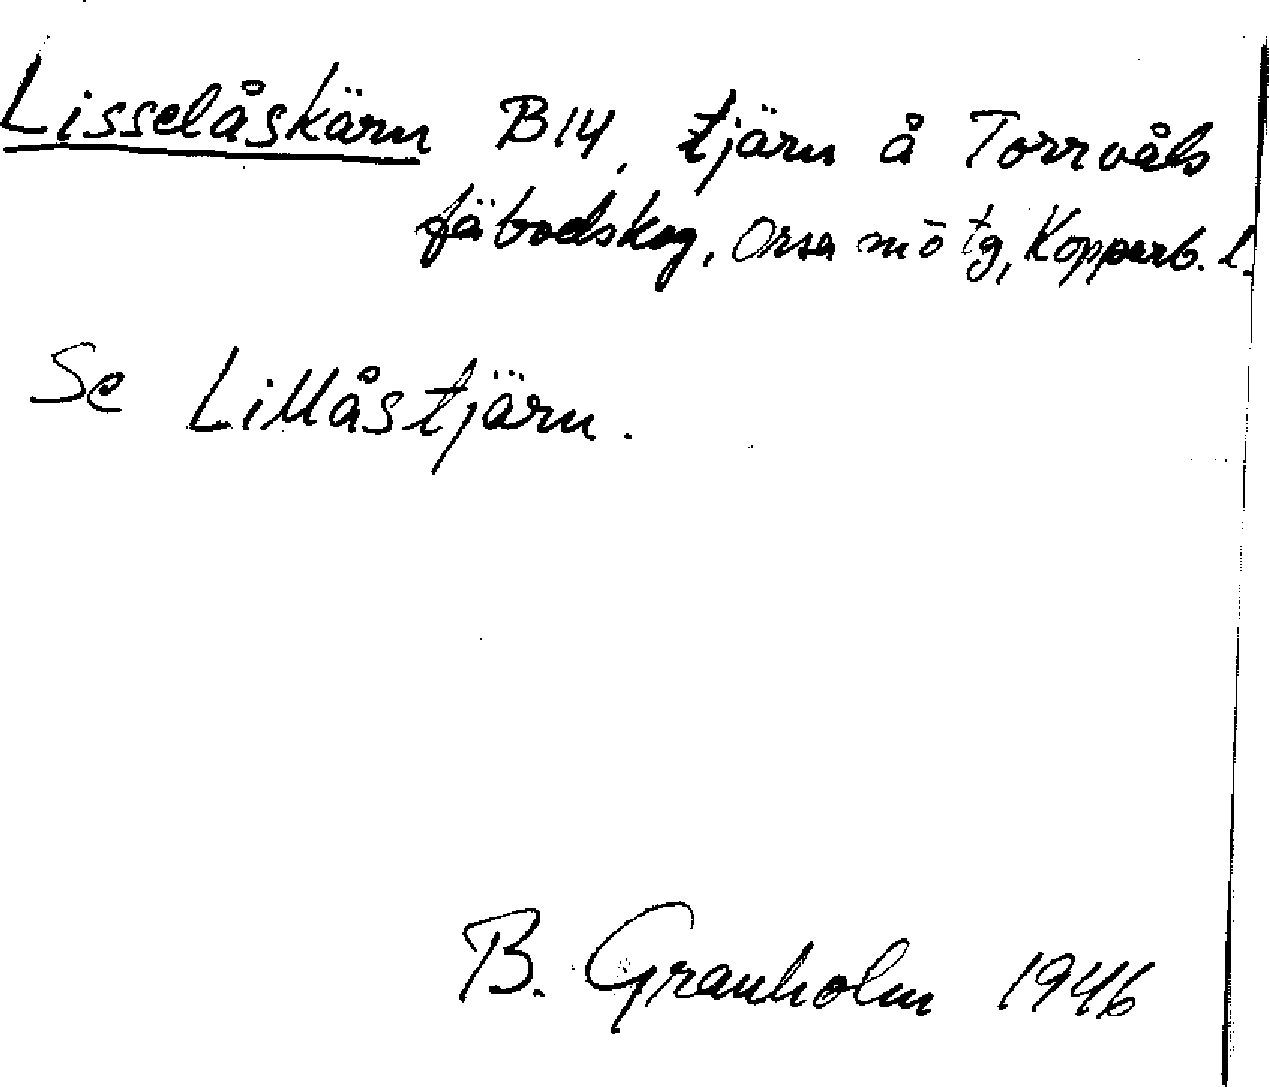 Lisselåskärn B14, tjärn å Torrvåls
fäbodskog, Orsa mö tg, Kopparb. l.
Se Lillåstjärn.
B. Granholm 1946